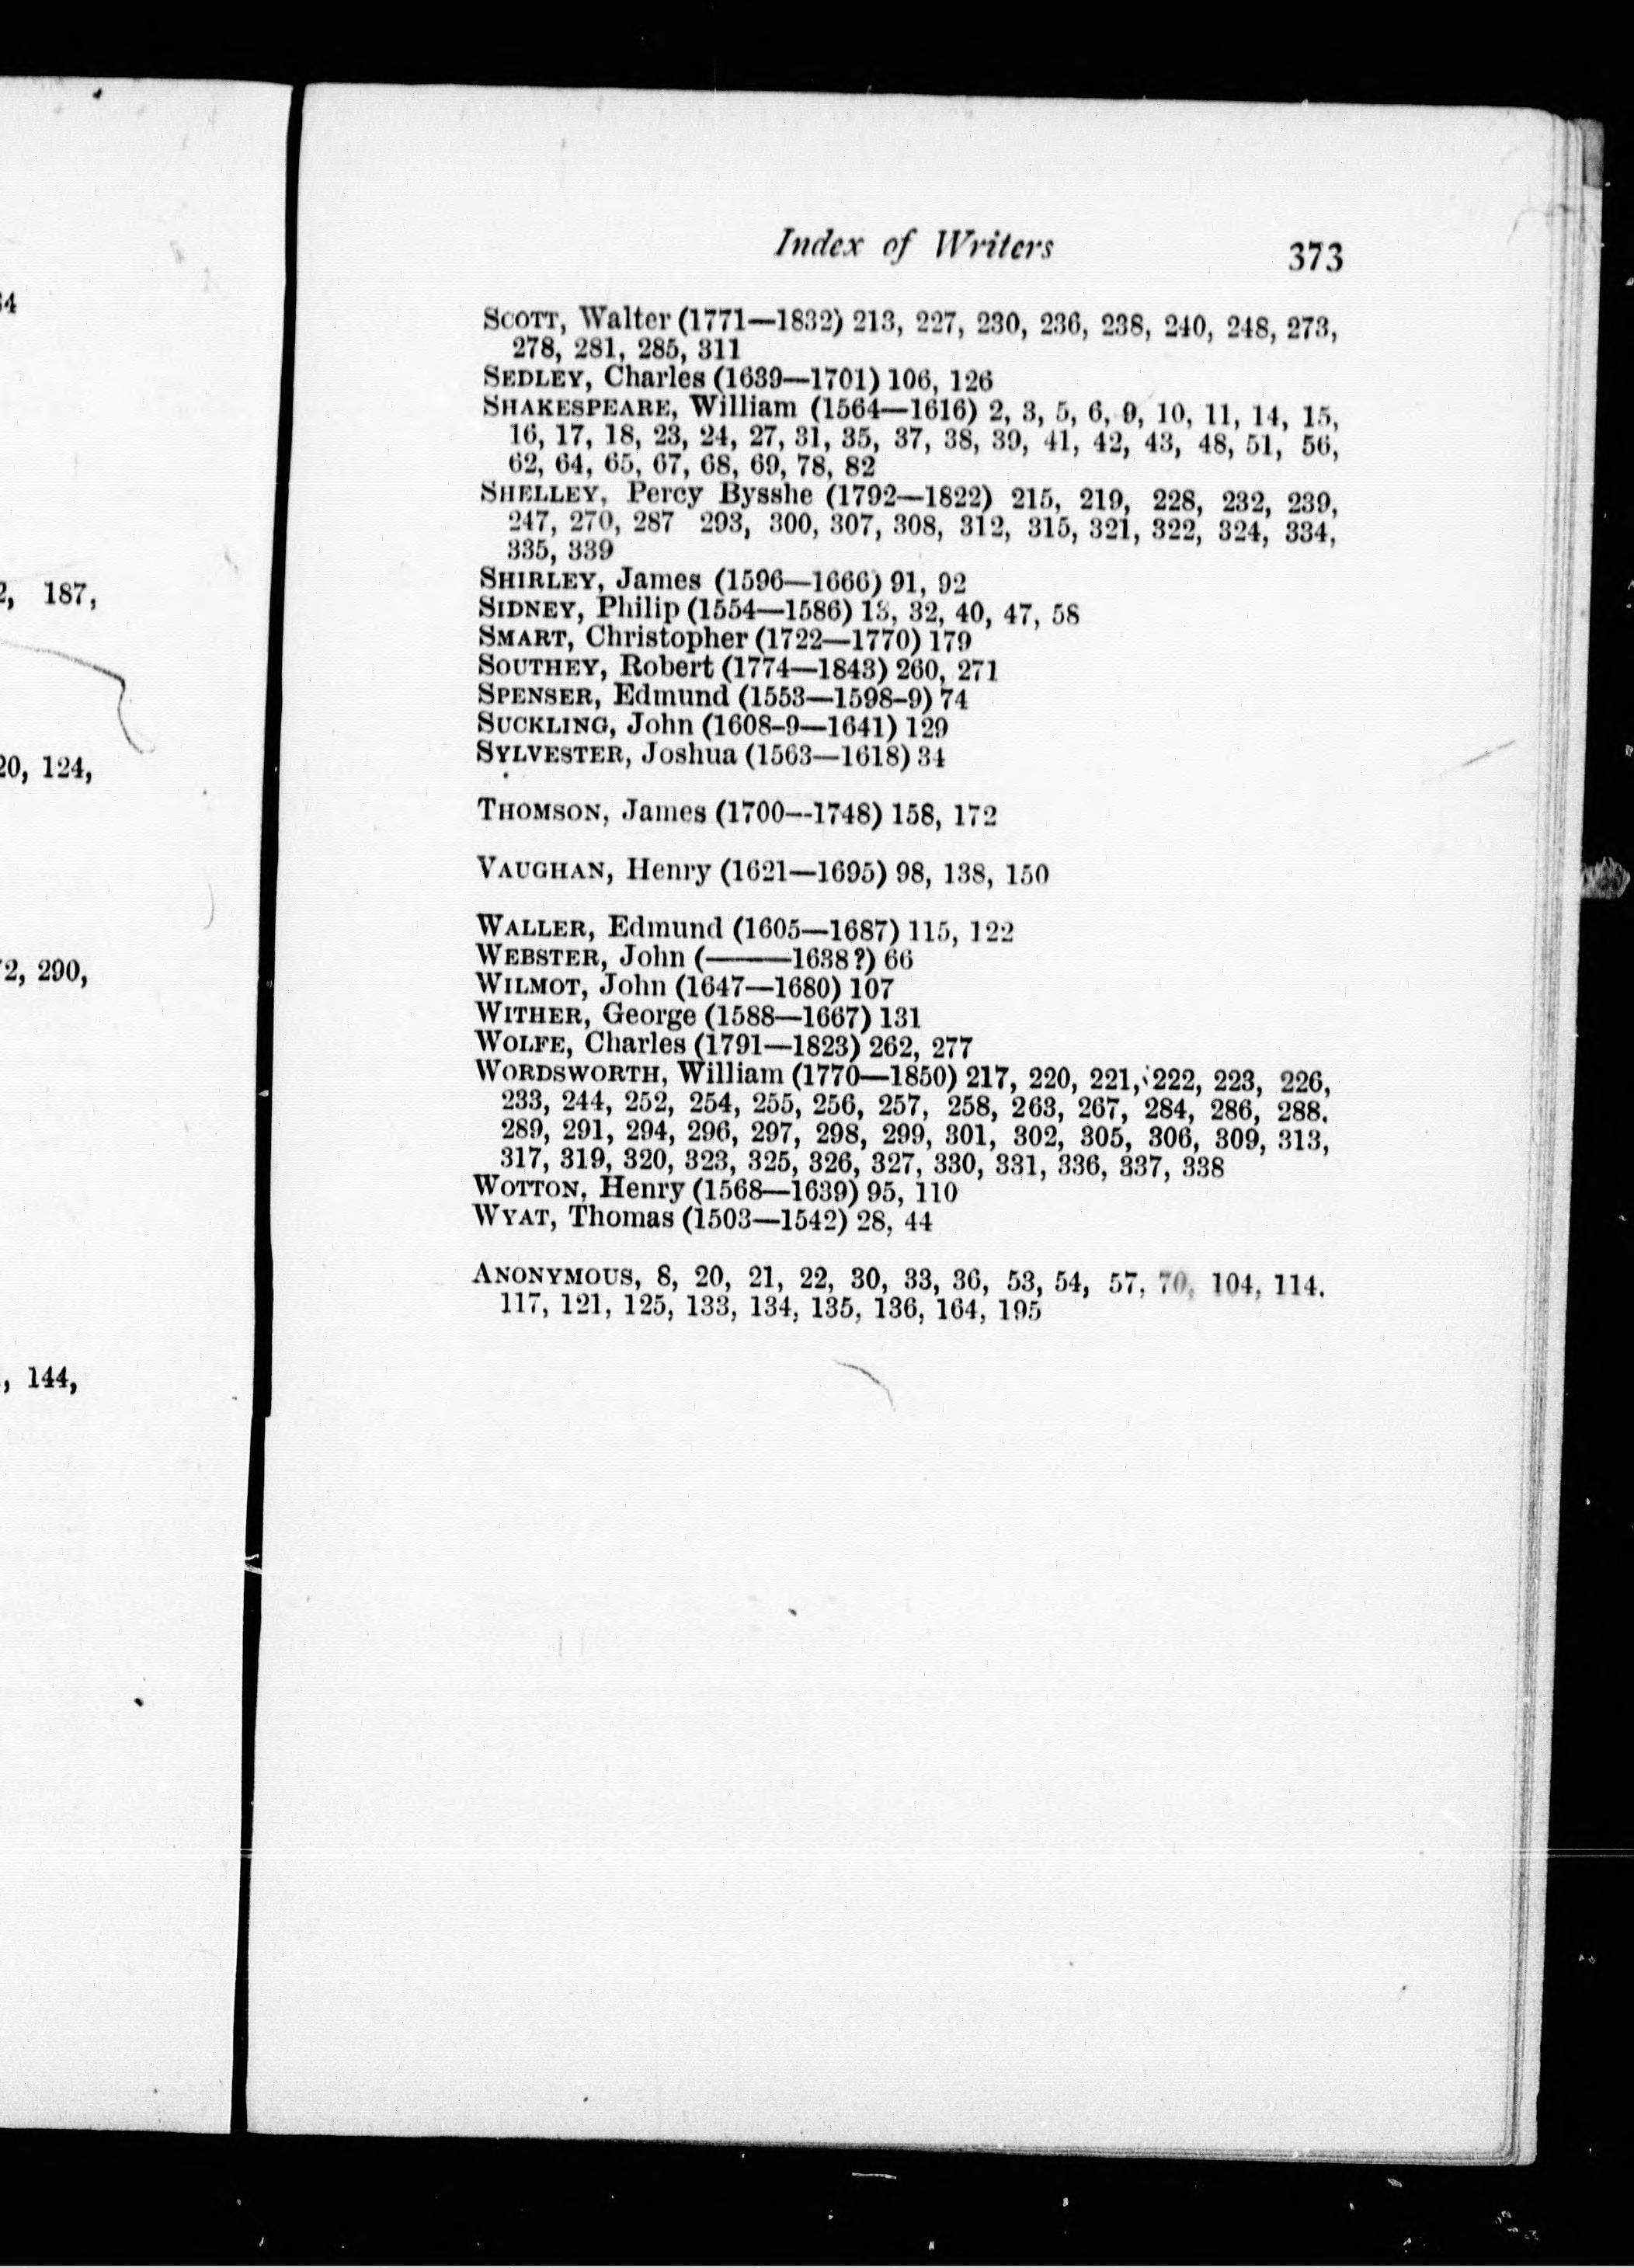 34
2, 187,
20, 124,
72, 290,
, 144,
Index of Writers 373
SCOTT, Walter (1771—1832) 213, 227, 230, 236, 238, 240, 248, 273,
278, 281, 285, 311
SEDLEY, Charles (1639—1701) 106, 126
SHAKESPEARE, William (1564—1616) 2, 3, 5, 6, 9, 10, 11, 14, 15,
16, 17, 18, 23, 24, 27, 31, 35, 37, 38, 39, 41, 42, 43, 48, 51, 56,
62, 64, 65, 67, 68, 69, 78, 82
SHELLEY, Percy Bysshe (1792—1822) 215, 219, 228, 232, 239,
247, 270, 287 293, 300, 307, 308, 312, 315, 321, 322, 324, 334,
335, 339
SHIRLEY, James (1596—1666) 91, 92
SIDNEY, Philip (1554—1586) 13, 32, 40, 47, 58
SMART, Christopher (1722—1770) 179
SOUTHEY, Robert (1774—1843) 260, 271
SPENSER, Edmund (1553—1598-9) 74
SUCKLING, John (1608-9—1641) 129
SYLVESTER, Joshua (1563—1618) 34
THOMSON, James (1700—1748) 158, 172
VAUGHAN, Henry (1621—1695) 98, 138, 150
WALLER, Edmund (1605—1687) 115, 122
WEBSTER, John (———1638?) 66
WILMOT, John (1647—1680) 107
WITHER, George (1588—1667) 131
WOLFE, Charles (1791—1823) 262, 277
WORDSWORTH, William (1770—1850) 217, 220, 221, 222, 223, 226,
233, 244, 252, 254, 255, 256, 257, 258, 263, 267, 284, 286, 288.
289, 291, 294, 296, 297, 298, 299, 301, 302, 305, 306, 309, 313,
317, 319, 320, 323, 325, 326, 327, 330, 331, 336, 337, 338
WOTTON, Henry (1568—1639) 95, 110
WYAT, Thomas (1503—1542) 28, 44
ANONYMOUS, 8, 20, 21, 22, 30, 33, 36, 53, 54, 57, 70, 104, 114.
117, 121, 125, 133, 134, 135, 136, 164, 195